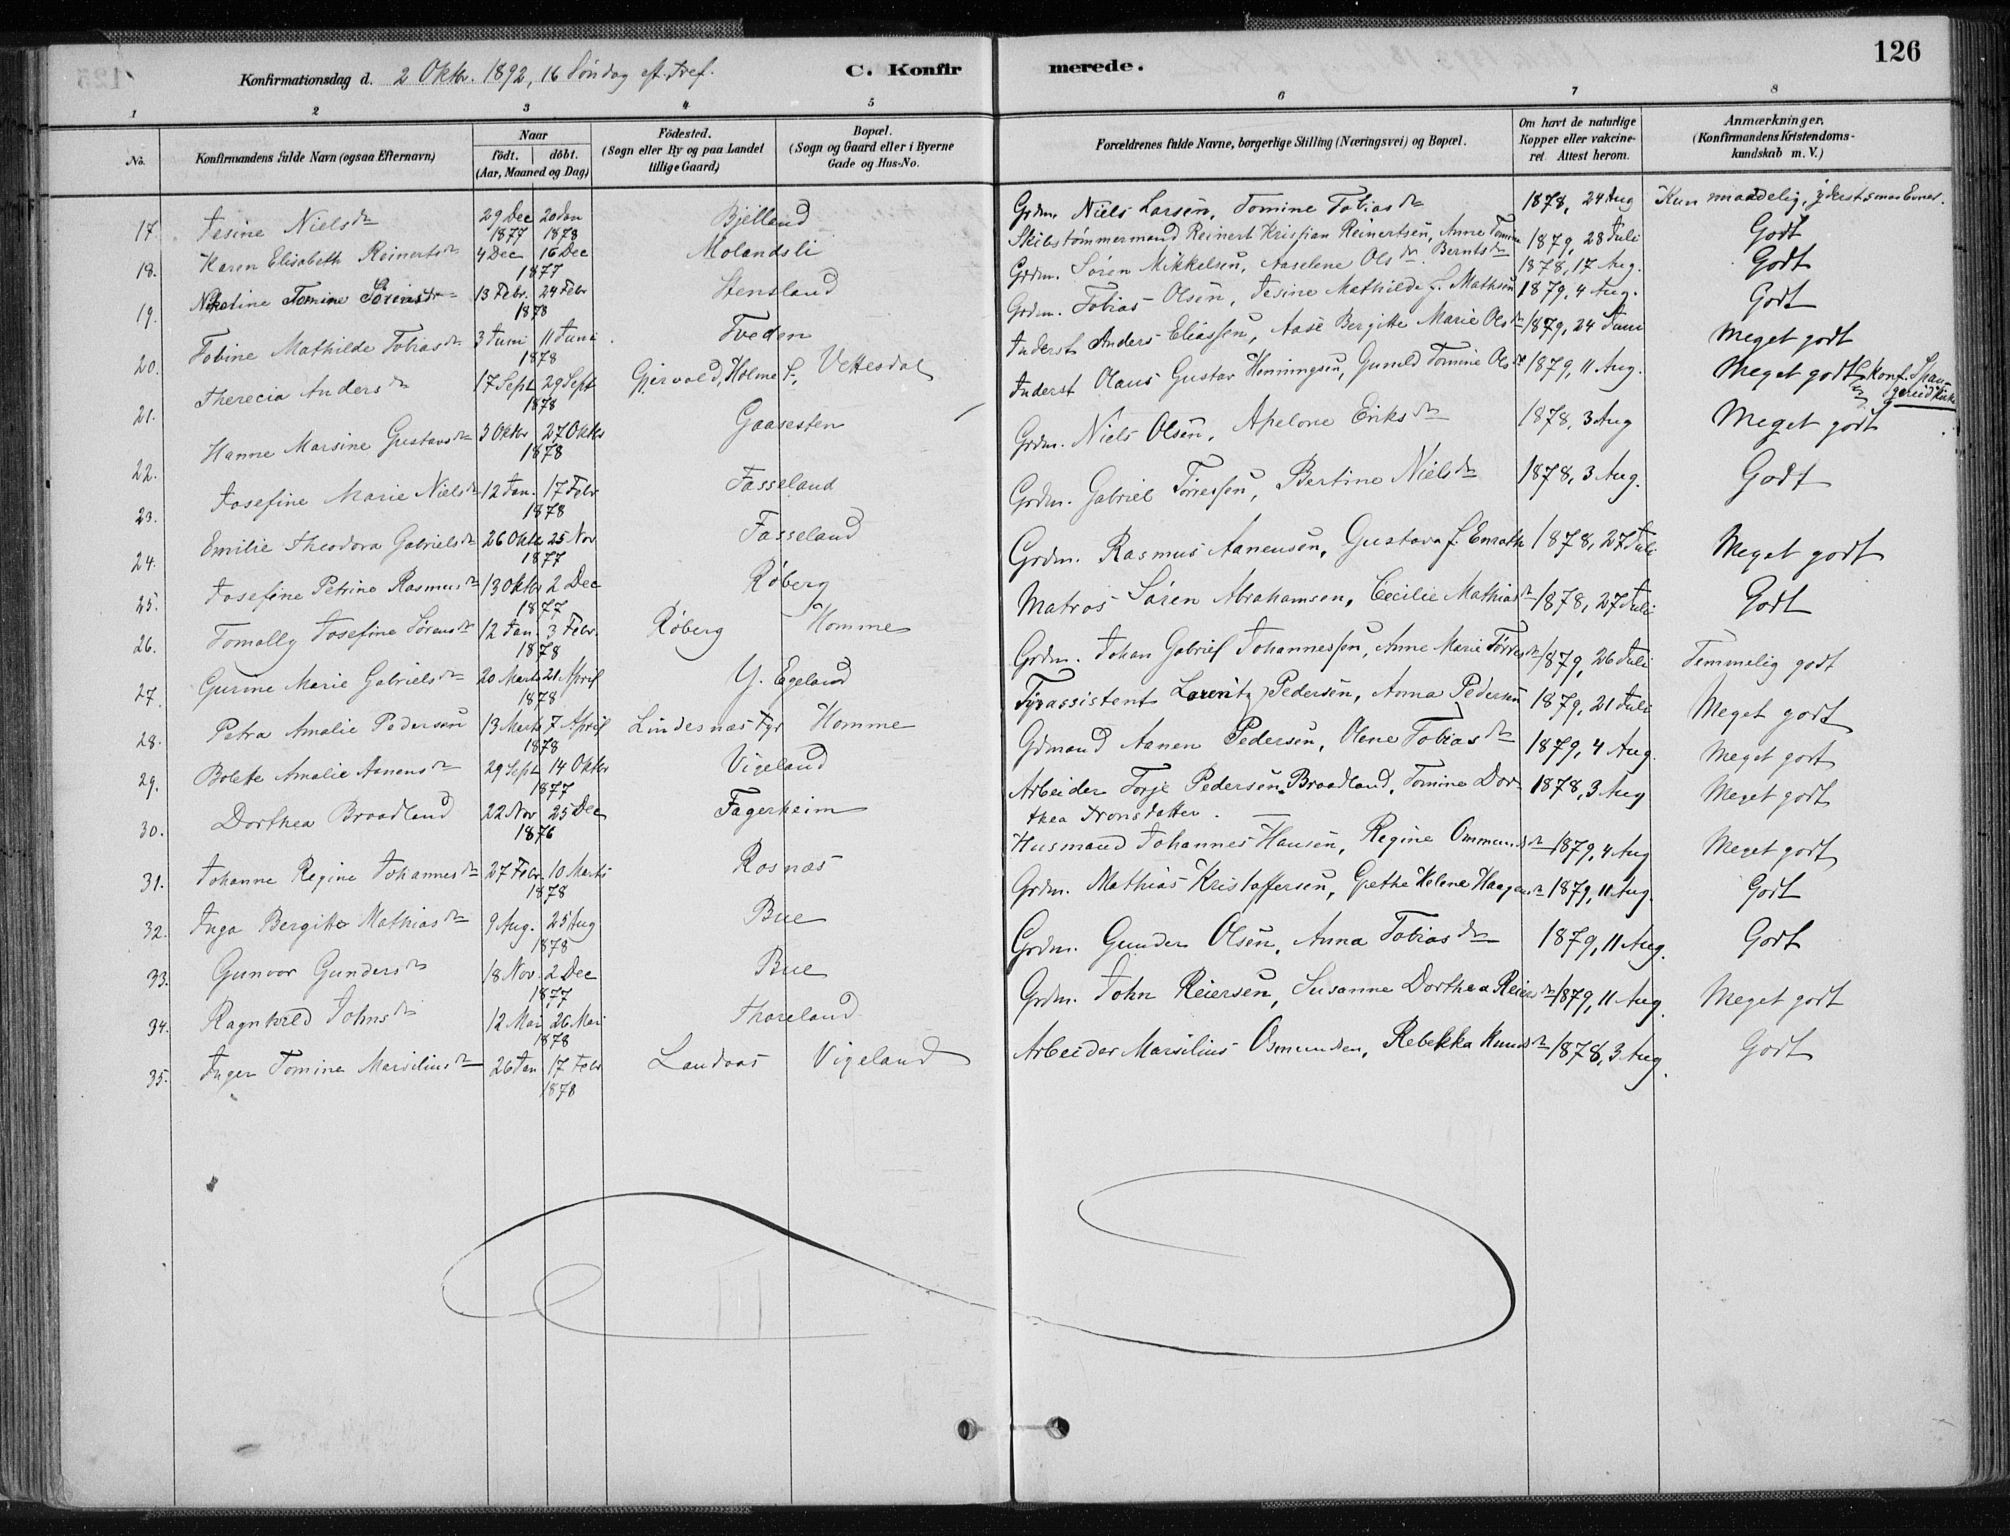 126
Konfirmationsdag d. 2 Oktbr. 1892, 16 Söndag eft. Tref. C. Konfirmerede.
1 2 3 4 5 6 7 8
No. Konfirmandens fulde Navn (ogsaa Efternavn) Naar födt. döbt. (Aar, Maaned og Dag) Födested. (Sogn eller By og paa Landet tillige Gaard) Bopæl. (Sogn og Gaard eller i Byerne Gade og Hus-No. Forældrenes fulde Navne, borgerlige Stilling (Næringsvei) og Bopæl. Om havt de naturlige Kopper eller vakcineret. Attest herom. Anmærkninger. (Konfirmandens Kristendomskundskab m. V.)
17. Jesine Nielsdr 29 Dec 1877 20 Jan 1878 Bjelland Grdm. Niels Larsen, Tomine Tobiasdr 1878, 24 Aug Kun maadelig, yderst smaa Evner.
18. Karen Elisabeth Reinertsdr 4 Dec 16 Dec 1877 Molandsli Skibstømmermand Reinert Kristian Reinertsen, Anne Tomine Berntsdr 1879, 28 Juli Godt
19. Nikoline Tomine Sörensdr 13 Febr. 24 Febr 1878 Stensland Grdm. Sören Mikkelsen, Aaselene Olsdr 1878, 17 Aug. Godt
20. Tobine Mathilde Tobiasdr 3 Juni 11 Juni 1878 Tveden Grdm. Tobias Olsen, Jesine Mathilde f. Mathsen 1879, 4 Aug. Godt
21. Therecia Andersdr 17 Sept 29 Sept 1878 Gjervold, Holme S., Vettesdal Inderst Anders Eliassen, Aase Bergitte Marie Olsdr 1879, 24 Juni Meget godt
22. Hanne Marsine Gustavsdr 3 Oktbr 27 Oktbr 1878 Gaasesten Inderst Olaus Gustav Henningsen, Gunild Tomine Olsdr 1879, 11 Aug. Meget godt Konf. i Spangereid Kirke
23. Josefine Marie Nielsdr 12 Jan. 17 Febr 1878 Fasseland Grdm. Niels Olsen, Apelone Eriksdr 1878, 3 Aug Meget godt
24. Emilie Theodora Gabrielsdr 26 Oktbr 25 Nov 1877 Fasseland Grdm. Gabriel Törressen, Bertine Nielsdr 1878, 3 Aug. Godt
25. Josefine Petrine Rasmusdr 13 Oktbr 2 Dec 1877 Röberg Grdm. Rasmus Aanensen, Gustava f. 1878, 27 Juli Meget godt
26. Tomally Josefine Sörensdr 12 Jan. 3 Febr. 1878 Röberg Homme Matros Sören Abrahamsen, Cecilie Mathiasdr 1878, 27 Juli Godt
27. Gurine Marie Gabrielsdr 20 Marts 21 April 1878 Y. Egeland Grdm. Johan Gabriel Johannessen, Anne Marie Törresdr 1879, 26 Juli Temmelig godt
28. Petra Amalie Pedersen 13 Marts 7 April 1878 Lindesnæs Fyr Homme Fyrassistent Lorentz Pedersen, Anna Pedersen 1879, 21 Juli Meget godt
29. Bolete Amalie Aanensdr 29 Sept 14 Oktbr 1877 Vigeland Grdmand Aanen Pedersen, Olene Tobiasdr 1879, 4 Aug. Meget godt
30. Dorthea Braadland 22 Nov 25 Dec 1876 Fagerheim Arbeider Torje Pedersen Braadland, Tomine Dorthea Tronsdatter. 1878, 3 Aug Meget godt
31. Johanne Regine Johannesdr 27 Febr. 10 Marts 1878 Rosnæs Husmand Johannes Hansen, Regine Ommundsdr 1879, 4 Aug Meget godt
32. Inga Bergitte Mathiasdr 9 Aug. 25 Aug 1878 Bue Grdm. Mathias Kristoffersen, Grethe Helene Haagensdr 1879, 11 Aug. Godt
33. Gunvor Gundersdr 18 Nov. 2 Dec 1877 Bue Grdm. Gunder Olsen, Anna Tobiasdr 1879, 11 Aug. Godt
34. Ragnhild Johnsdr 12 Mai 26 Mai 1878 Thoreland Grdm. John Reiersen, Susanne Dorthea Reiersdr 1879, 11 Aug. Meget godt
35. Inger Tomine Marsiliusdr 26 Jan 17 Febr 1878 Landaas Vigeland Arbeider Marsilius Osmundsen, Rebekka Knudsdr 1878, 3 Aug. Godt